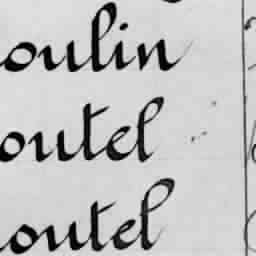 oulin
outel
outel